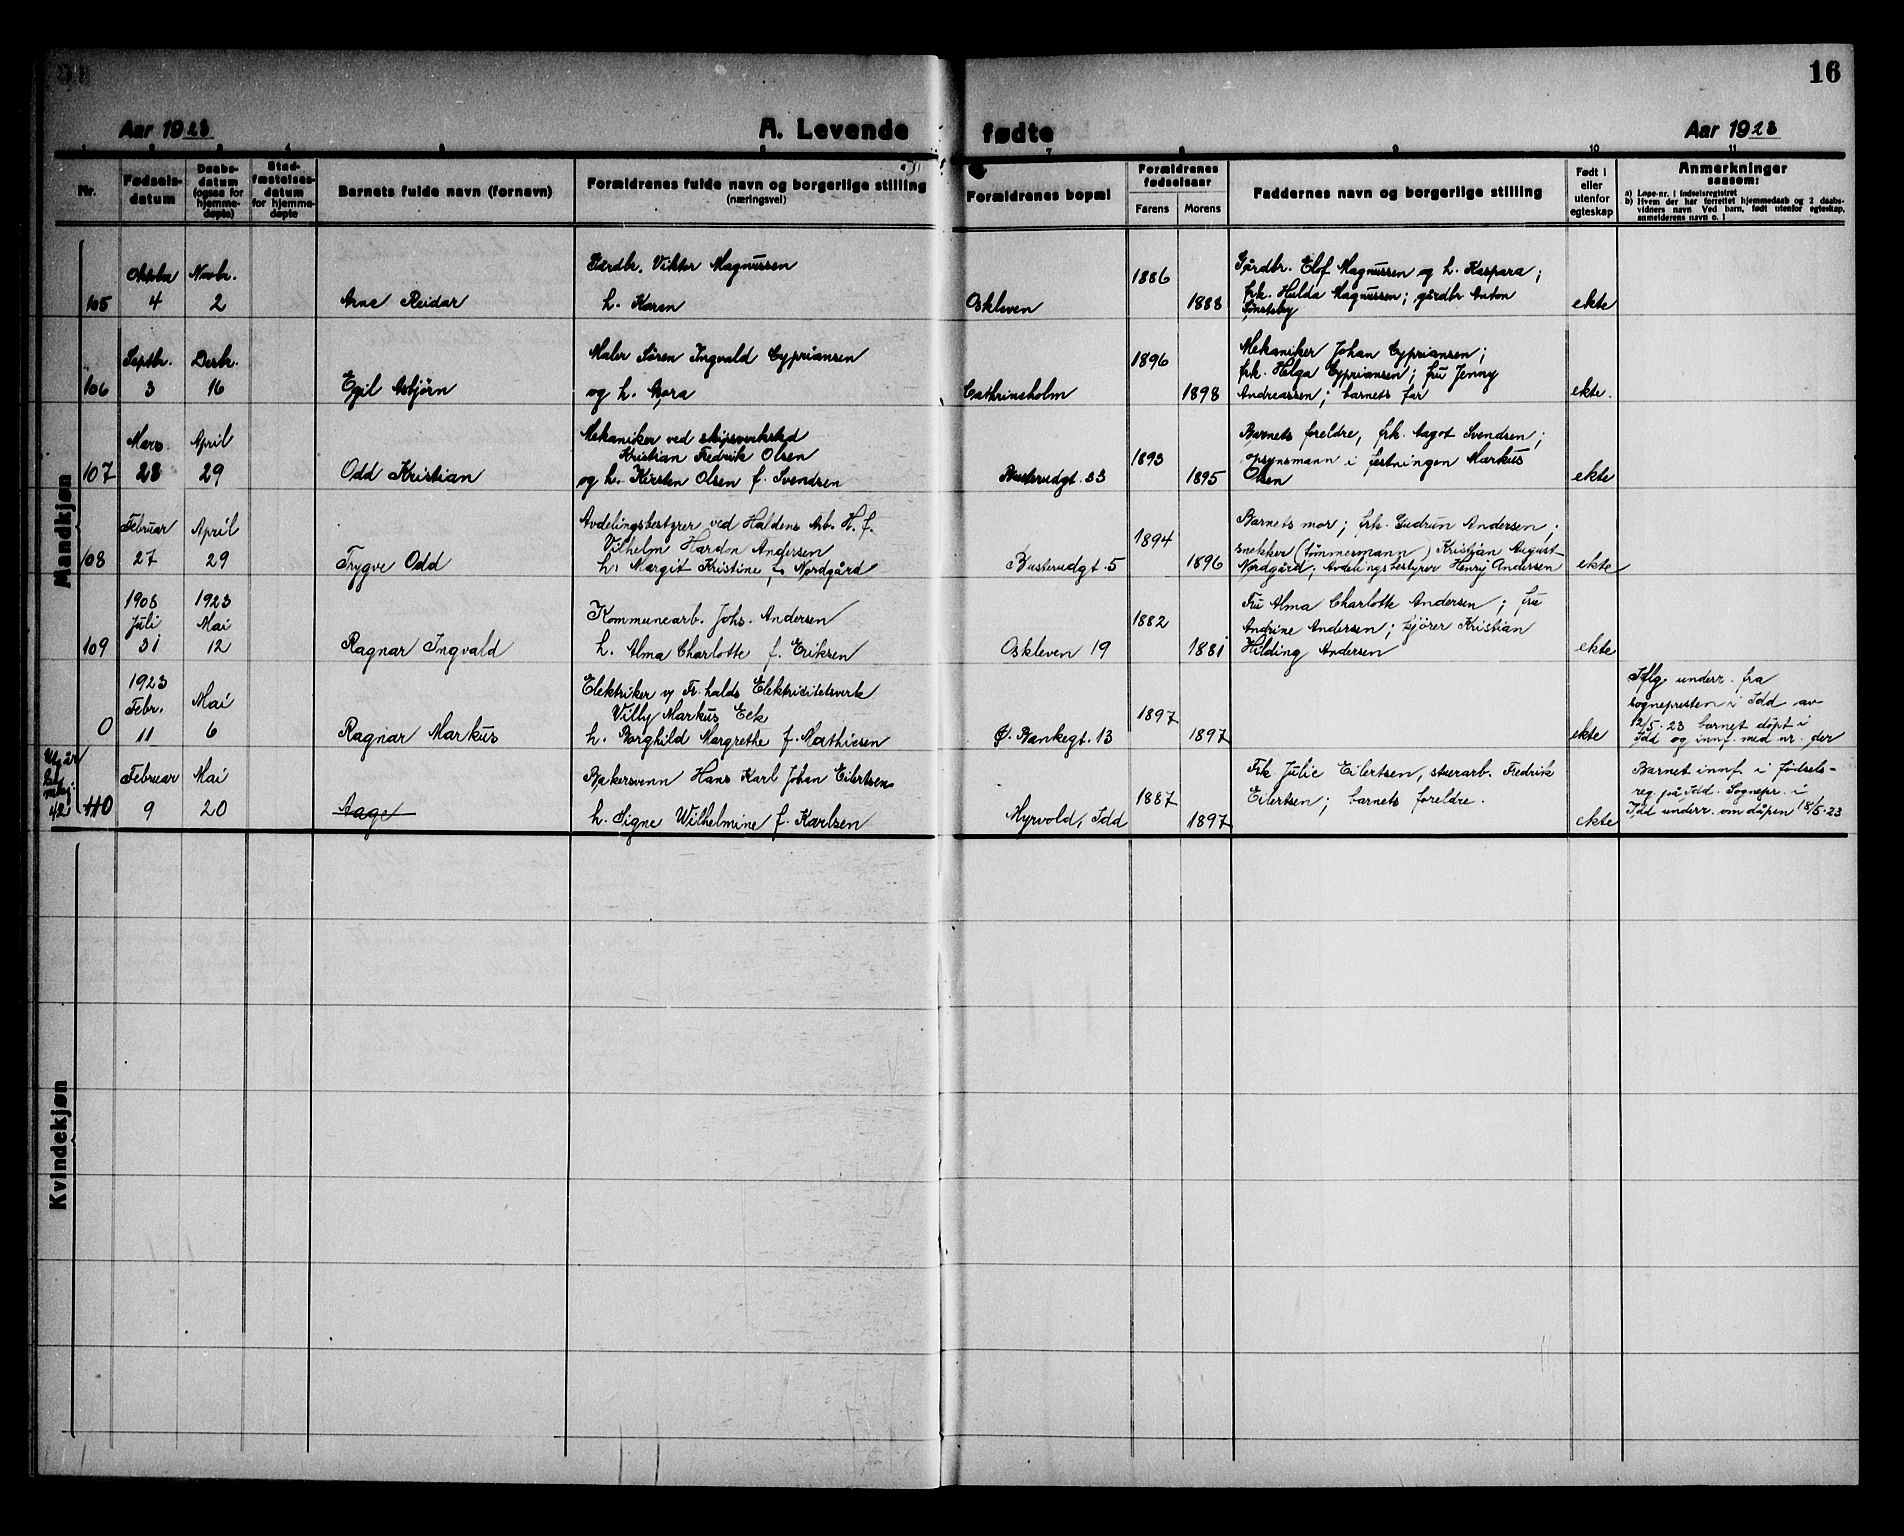 16
Aar 1923
A. Levende
fødte
Aar 1923
1 2 3 4 5 6 7 8 9 10 11
Nr.
Fødsels-
datum
Daabs-
datum
(ogsaa for
hjemme-
døpte)
Stad-
fæstelses-
datum
for hjemme-
døpte
Barnets fulde navn (fornavn)
Forældrenes fulde navn og borgerlige stilling
(næringsvei)
Forældrenes bopæl
Forældrenes
fødselsaar
Farens
Morens
Faddernes navn og borgerlige stilling
Født i
eller
utenfor
egteskap
Anmerkninger
saasom:
a) Løpe-nr. i fødselsregistret
b) Hvem der har forrettet hjemmedaab og 2 daabs-
vidners navn. Ved barn, født utenfor egteskap,
anmelderens navn o. l
Mandkjøn
105
Oktober
4
Novbr.
2
Arne Reidar
Gårdbr. Viktor Magnussen
h. Karen
Oskleven
1886
1888
Gårdbr. Elof Magnussen og h. Kaspara;
frk. Hulda Magnussen; gårdbr Anton
Sønsteby
ekte
106
Septbr.
3
Desbr.
16
Egil Asbjörn
Maler Sören Ingvald Cypriansen
og h. Thora
Cathrinsholm
1896
1898
Mekaniker Johan Cypriansen;
frk. Helga Cypriansen; fru Jenny
Andreassen; barnets far
ekte.
107
Mars
28
April
29
Odd Kristian
Mekaniker ved skipsverksted
Kristian Fredrik Olsen
og h. Kirsten Olsen f. Svendsen
Busterudgt. 33
1893
1895
Barnets foreldre, frk. Aagot Svendsen;
opsynsmann i festningen Markus
Olsen
ekte
108
Februar
27
April
29
Trygve Odd
Avdelingsbestyrer ved Haldens Arb. H. f.
Vilhelm Hardon Andersen
h. Margit Kristine f. Nordgård
Busterudgt. 5
1894
1896
Barnets mor; frk. Gudrun Andersen;
snekker (tømmermann) Kristian August
Nordgård; Avdelingsbestyrer Henry Andersen
ekte
109
1908
Juli
31
1923
Mai
12
Ragnar Ingvald
Kommunearb. Johs. Andersen
h. Alma Charlotte f. Eriksen
Oskleven 19
1882
1881
Fru Alma Charlotte Andersen; fru
Andrine Andersen; kjører Kristian
Hilding Andersen
ekte
0
1923
Febr.
11
Mai
6
Ragnar Markus
Elektriker v/ Fr.halds Elektricitetsverk
Villy Markus Eck
h. Borghild Margrethe f. Mathiesen
Ø. Bankegt. 13
1897
1897
ekte
Iflg underr. fra
sognepresten i Idd av
12/5-23 barnet døpt i
Idd og innf. med nr. der
Utgår
42
110
Februar
9
Mai
20
Aage
Bakersvenn Hans Karl Johan Eilertsen
h. Signe Wilhelmine f. Karlsen
Myrvold, Idd
1887
1897
Frk Julie Eilertsen, stuerarb. Fredrik
Eilertsen; barnets foreldre.
ekte
Barnet innf. i fødsels-
reg. på Idd. Sognepr. i
Idd underr. om dåpen 18/5-23
Kvindekjøn